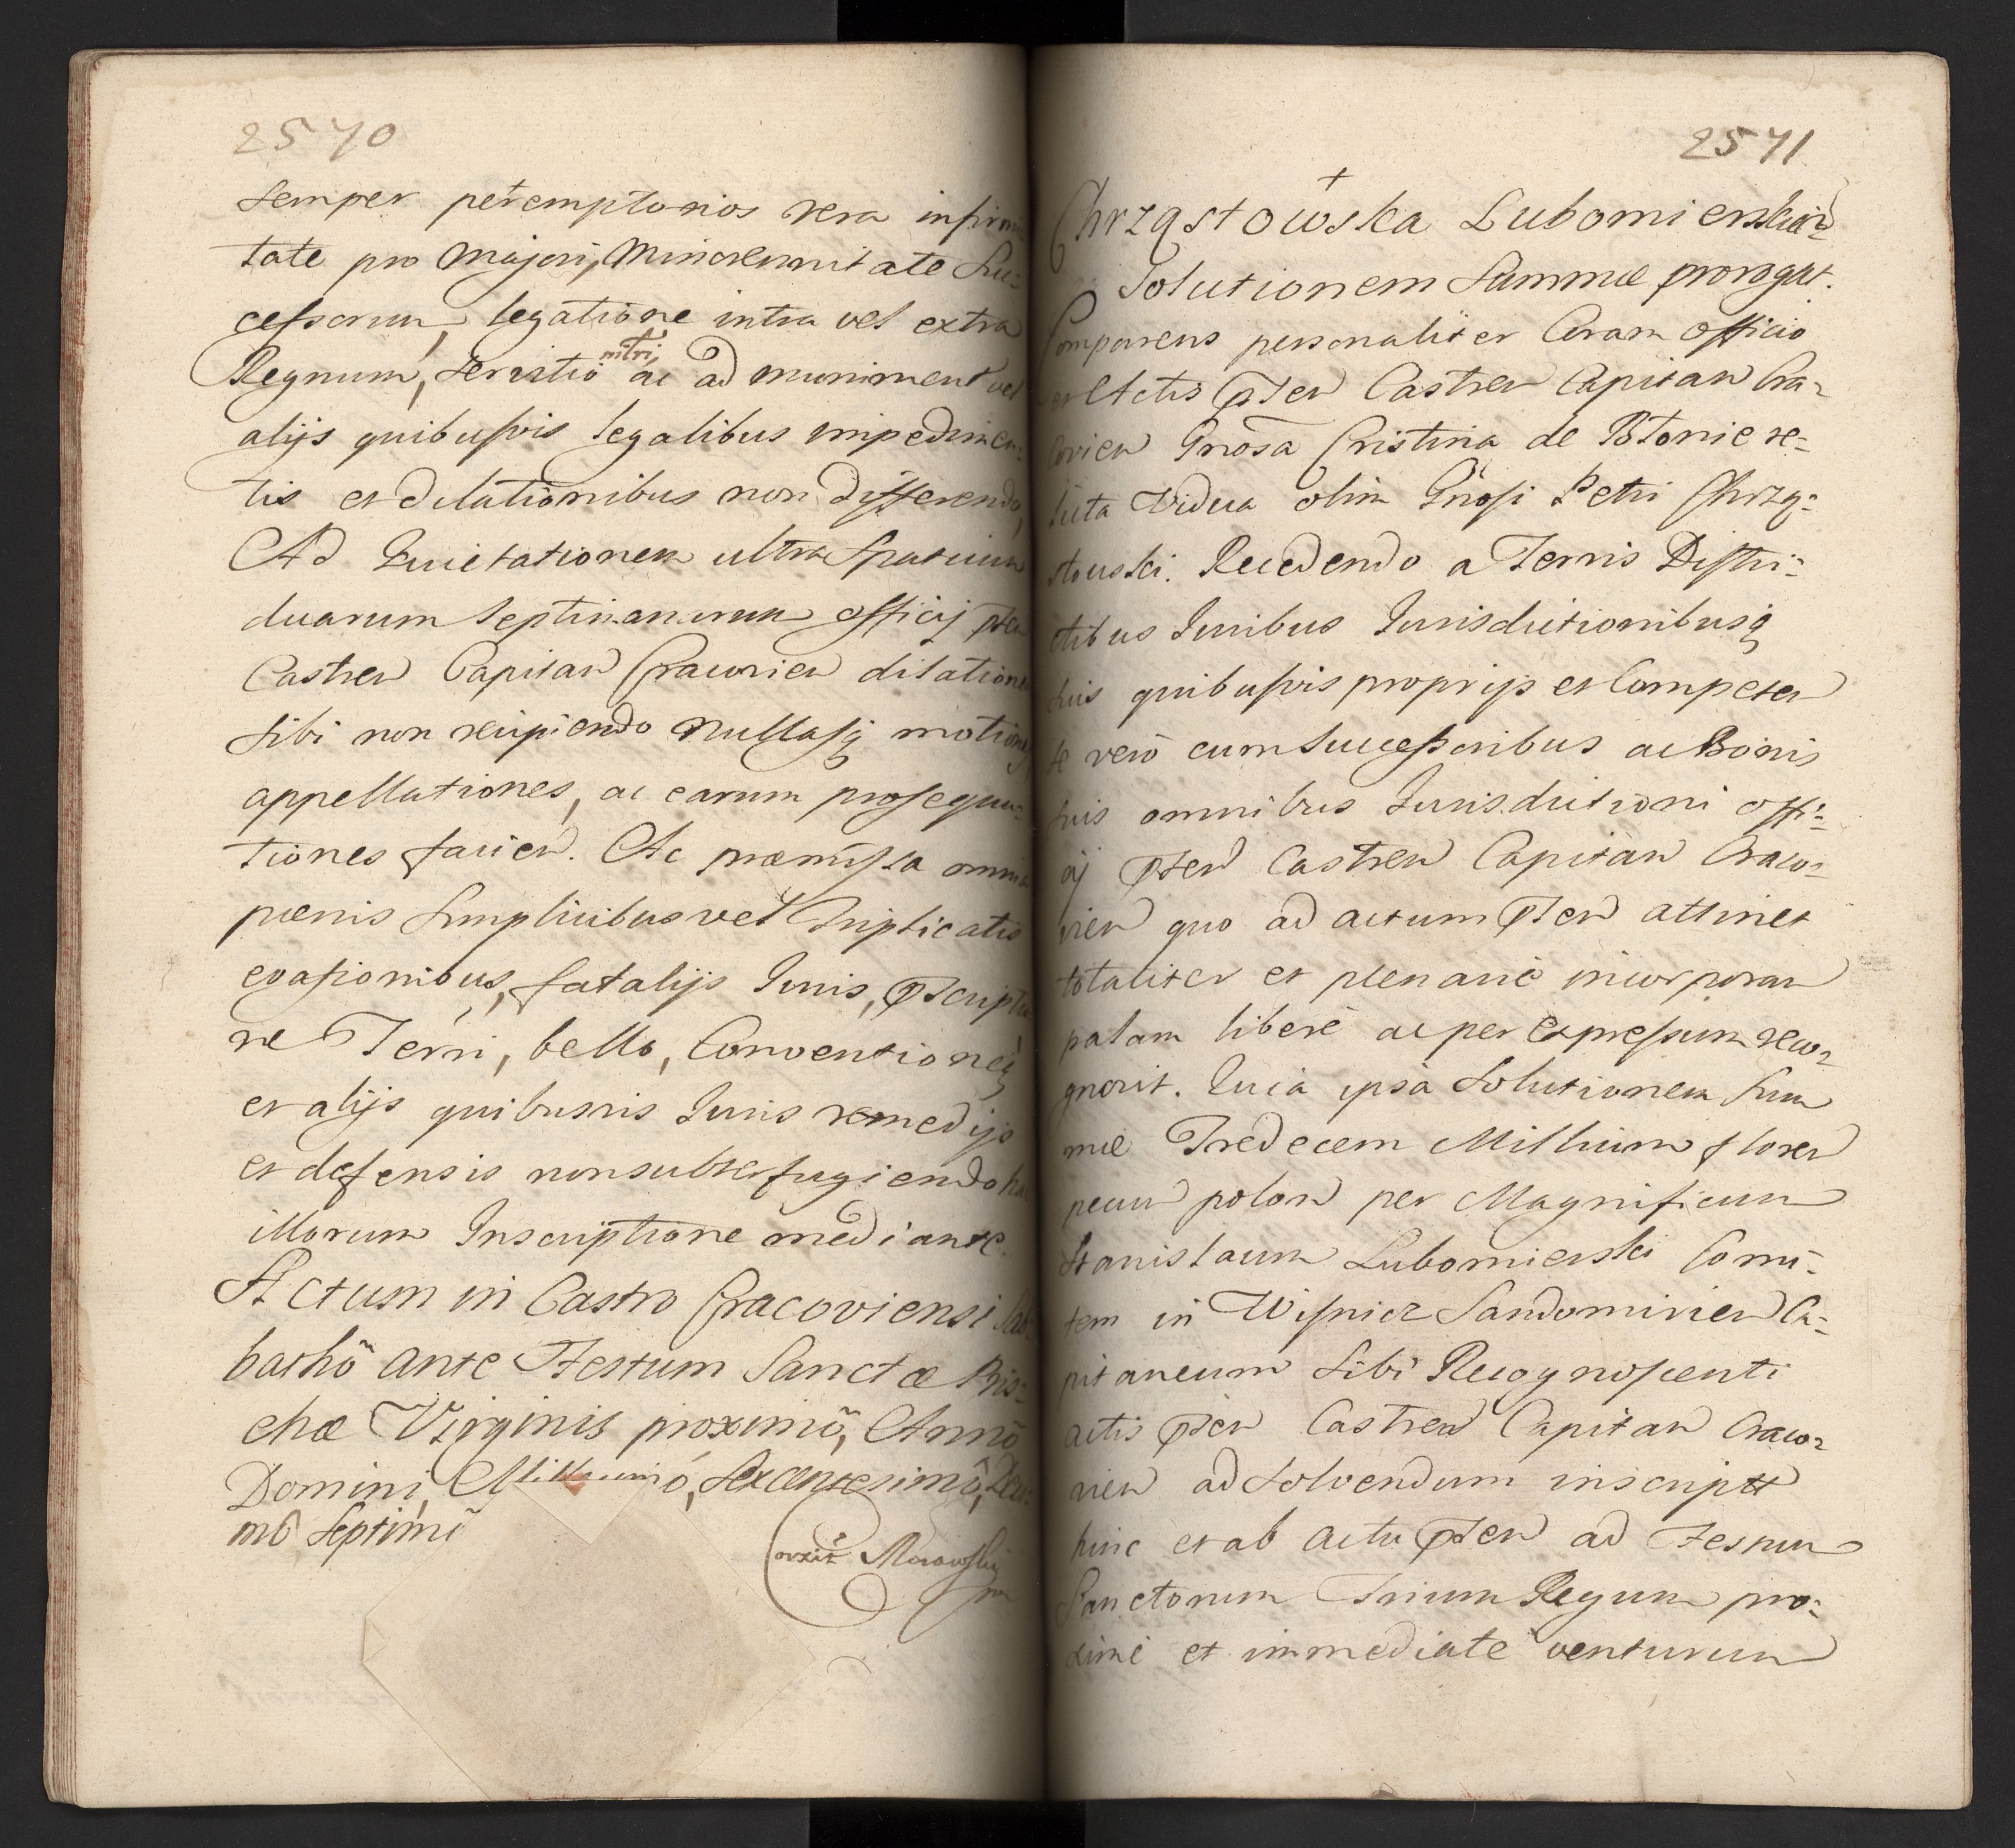 2570
semper peremptorios vera infirmi
tate pro majori, Minorennitate Suc=
cessorum, legatione intra vel extra
Regnum, servitio ntri ac ad muniment vel
alijs quibusvis legalibus impedimen=
tis et dilationibus non differendo,
Ad Quietationem ultra Spatium
duarum septimanarum officij pten
Castren Capitan Cracovien dilatione
sibi non recipiendo nullasq motiones
appellationes, ac earum prosequu=
tiones facien. Ac praemissa omnia
paenis simplicibus vel triplicatis
evasionibus, fatalijs Iuris, pscriptio
ne Terri, bello, Conventioneq
et alijs quibusvis Iuris remedijs
et defensis non subterfugiendo ha
illorum Inscriptione mediante.
Actum in Castro Cracoviensi Sab
bathô ante Festum Sanctæ Pris=
chæ Virginis proximô, Annô
Domini, Millesimô, sexcentesimô, Deci
mô Septimô
Corxit Morawski
mp
2571
Chrząstowska Lubomierskiem
Solutionem Summæ prorogat.
Comparens personaliter Coram officio
et Actis pten Castren Capitan Cra=
covien Gnosa Cristina de Potonie re=
licta Vidua olim Gnosi Petri Chrzą=
stowski. Recedendo a Terris Distri=
ctibus Iuribus Iurisdictionibusq
suis quibusvis proprijs et Competen
se vero cum Successoribus ac Bonis
suis omnibus Iurisdictioni offi=
cij pten Castren Capitan Craco=
vien quo ad actum pten attinet
totaliter et plenarie incorporan
palam libere ac per expressum reco=
gnovit. Quia ipsa Solutionem Sum
mæ Tredecem Millium floren
pecun polon per Magnificum
Stanislaum Lubomierski Comi=
tem in Wisnicz Sandomirien Ca=
pitaneum sibi Recognoscenti
actis pten Castren Capitan Craco=
vien ad solvendum inscriptt
hinc et ab actu pten ad Festum
Sanctorum Trium Regum pro=
xime et immediate venturum